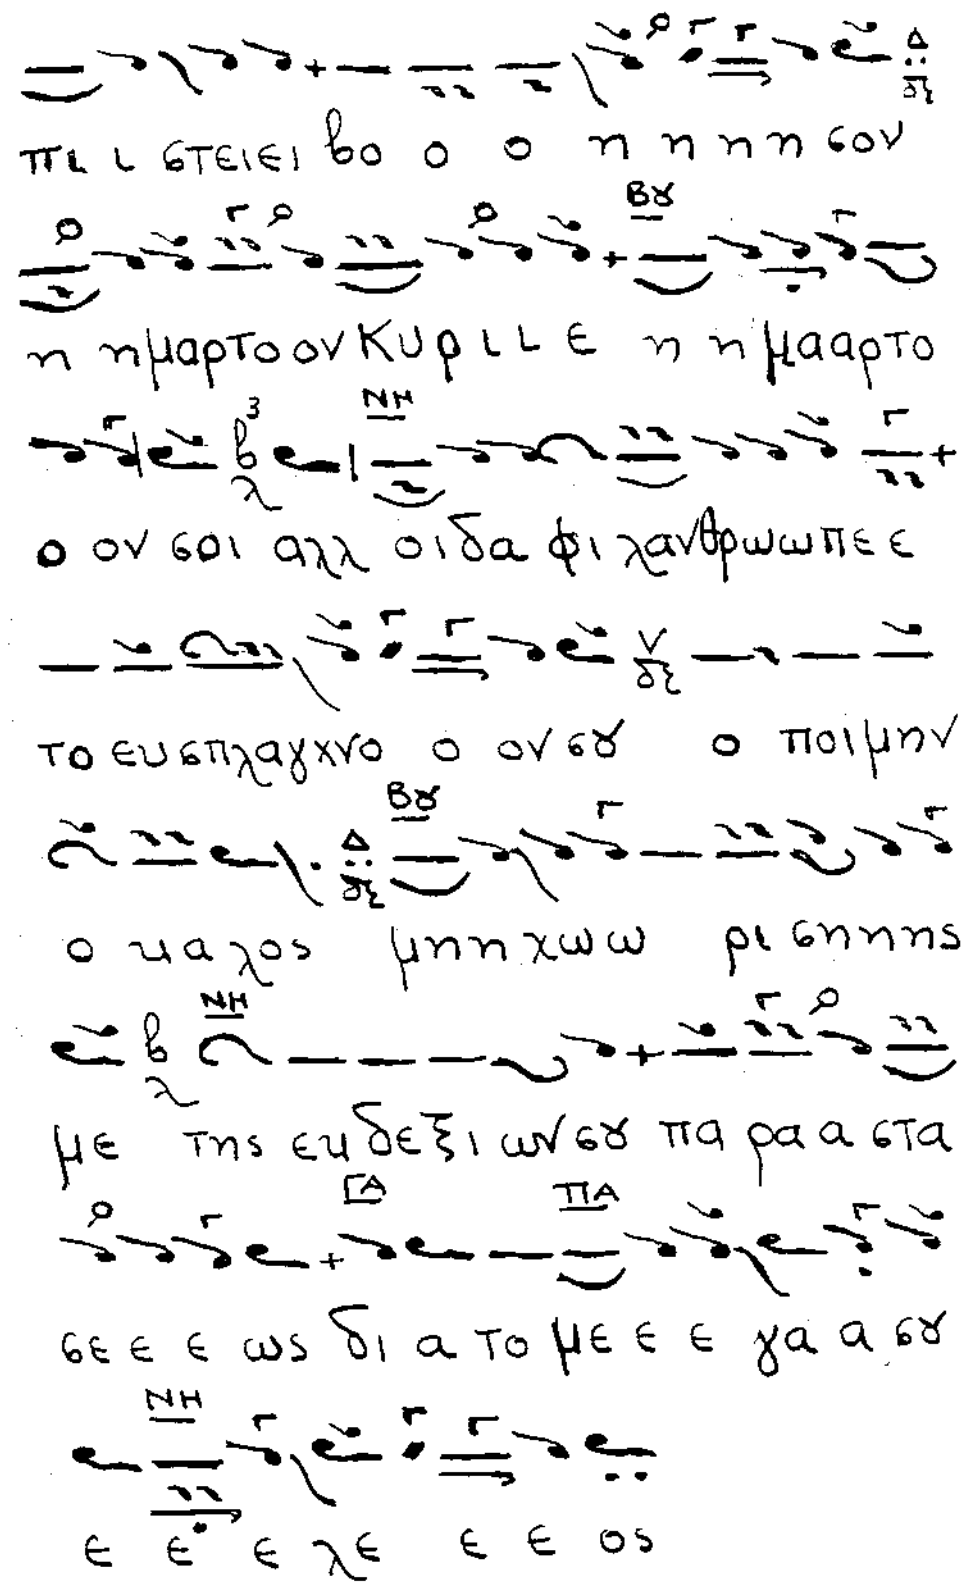 πι ι στειει βο ο ο η η η η σον
ΒȢ
η ημαρτοον Κυρι ι ε η ημααρτο
ΝΗ
ο ον σοι αλλ οιδα φιλανθρωωπε ε
το ευσπλαγχνο ο ονσȣ ο ποιμην
ΒȢ
ο καλος μηη χωω ρι σηηης
ΝΗ
με της εκδεξι ωνσȣ πα ραα στα
ΓΑ ΠΑ
σε ε ε ε ως δι α το με ε ε γα α σȣ
ΝΗ
ε ε ε λε ε ε ος